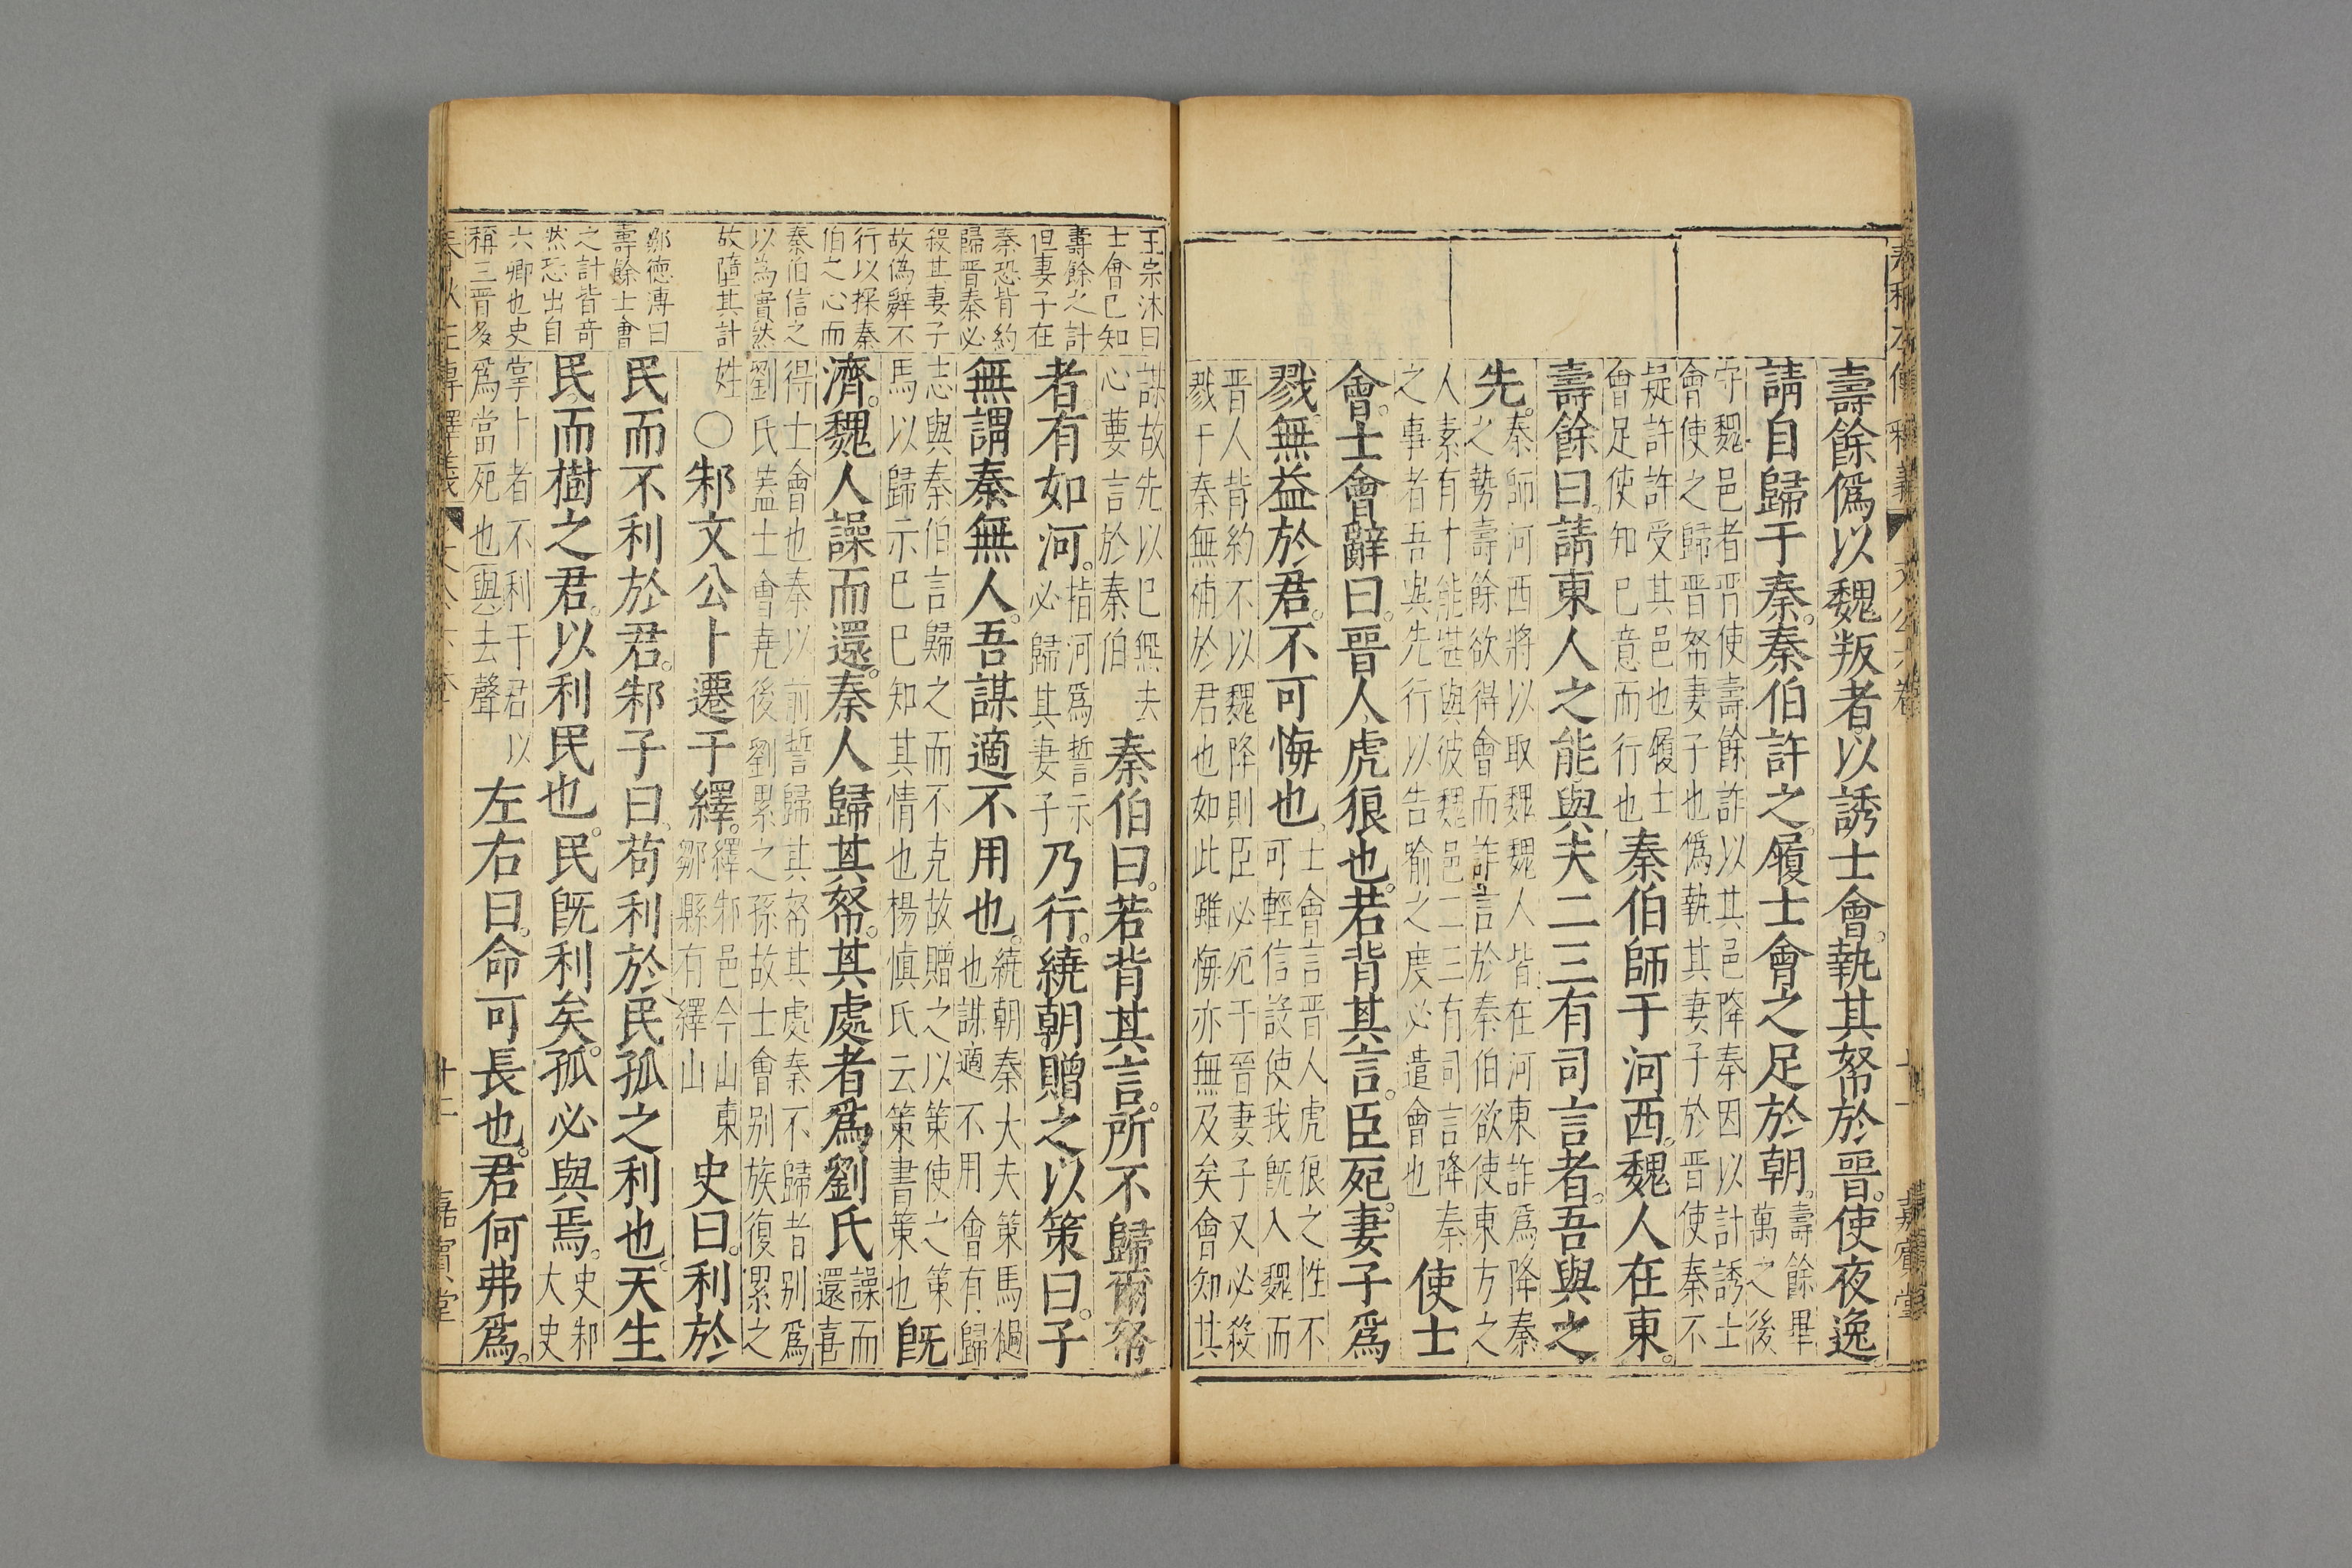 春秋左傳釋義 文公六卷 十一 嘉賓堂
壽餘僞以魏叛者。以誘士會。執其帑於晉。使夜逸。
請自歸于秦。秦伯許之。履士會之足於朝。
壽餘畢
萬之後
守魏邑者晉使壽餘詐以其邑降秦因以計誘士
會使之歸晉帑妻子也僞執其妻子於晉使秦不
疑許許受其邑也履士
會足使知已意而行也
秦伯師于河西。魏人在東。
壽餘曰。請東人之能與夫二三有司言者。吾與之
先。
秦師河西將以取魏魏人皆在河東詐爲降秦
之勢壽餘欲得會而詐言於秦伯欲使東方之
人素有才能堪與彼魏邑二三有司言降秦
之事者吾與先行以告喻之度必遣會也
使士
會。士會辭曰。晉人虎狼也。若背其言。臣死。妻子爲
戮。無益於君。不可悔也。
士會言晉人虎狼之性不
可輕信設使我旣入魏而
晉人背約不以魏降則臣必死于晉妻子又必殺
戮于秦無補於君也如此雖悔亦無及矣會知其
王宗沐曰
士會已知
壽餘之計
但妻子在
秦恐背約
歸晉秦必
殺其妻子
故僞辭不
行以探秦
伯之心而
秦伯信之
以為實然
故墮其計
鄒德溥曰
壽餘士會
之計皆奇
然恐出自
六卿也史
稱三晉多
謀故先以已無去
心要言於秦伯
秦伯曰。若背其言。所不歸爾帑
者。有如河。
指河爲誓示
必歸其妻子
乃行。繞朝贈之以策曰。子
無謂秦無人。吾謀適不用也。
繞朝秦大夫策馬檛
也謀適不用會有歸
志與秦伯言歸之而不克故贈之以策使之策
馬以歸示已已知其情也楊慎氏云策書策也
旣
濟。魏人譟而還。秦人歸其帑。其處者爲劉氏
譟而
還喜
得士會也秦以前誓歸其帑其處秦不歸者别爲
劉氏蓋士會堯後劉累之孫故士會别族復累之
姓
〇邾文公卜遷于繹。
繹邾邑今山東
鄒縣有繹山
史曰。利於
民而不利於君。邾子曰。苟利於民孤之利也。天生
民而樹之君。以利民也。民旣利矣。孤必與焉。
史邾
大史
掌卜者不利于君以
爲當死也與去聲
左右曰。命可長也。君何弗爲。
春秋左傳釋義 文公六卷 廿二 嘉賓堂